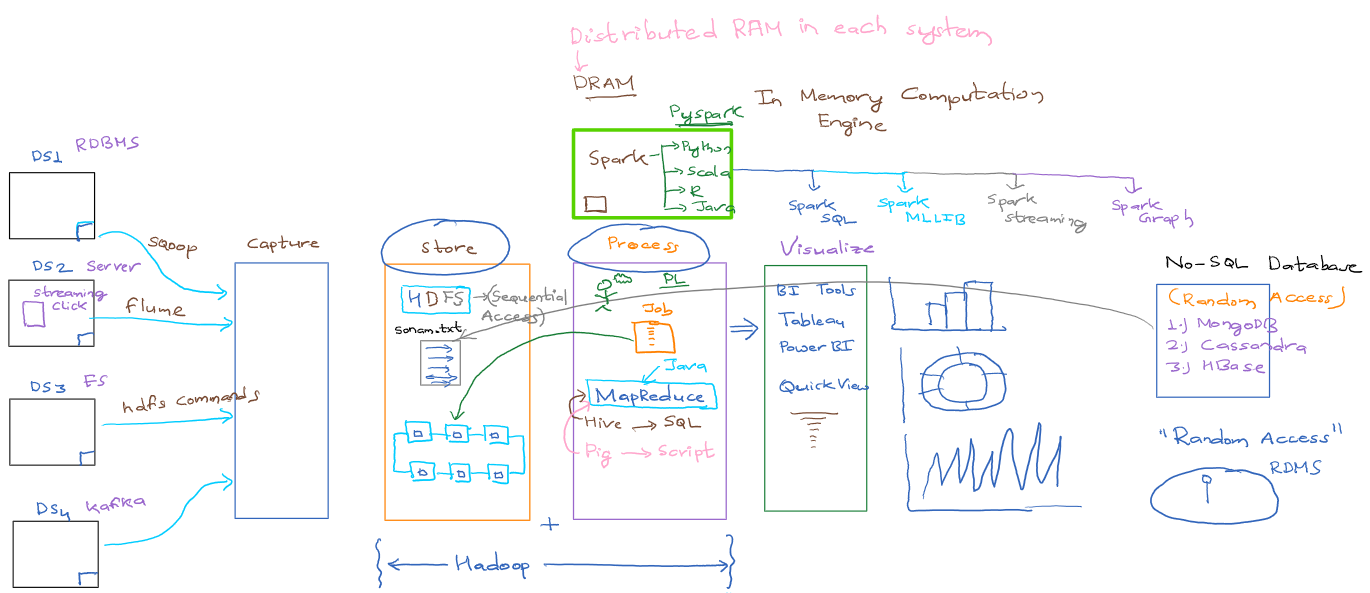 Distributed RAM in each system
DRAM
In Memory Computation
Engine
Pyspark
Spark
Python
Scala
R
Java
Spark
SQL
Spark
MLLIB
Spark
streaming
Spark
Graph
DS1 RDBMS
sqoop
DS2 Server
streaming
click
flume
DS3 FS
hdfs commands
DS4 kafka
Capture
Store
HDFS
(Sequential
Access)
sonam.txt
Process
PL
Job
Java
MapReduce
Hive → SQL
Pig → Script
+
{ Hadoop }
Visualize
BI Tools
Tableau
Power BI
QuickView
No-SQL Database
(Random Access)
1.) MongoDB
2.) Cassandra
3.) HBase
"Random Access"
RDMS